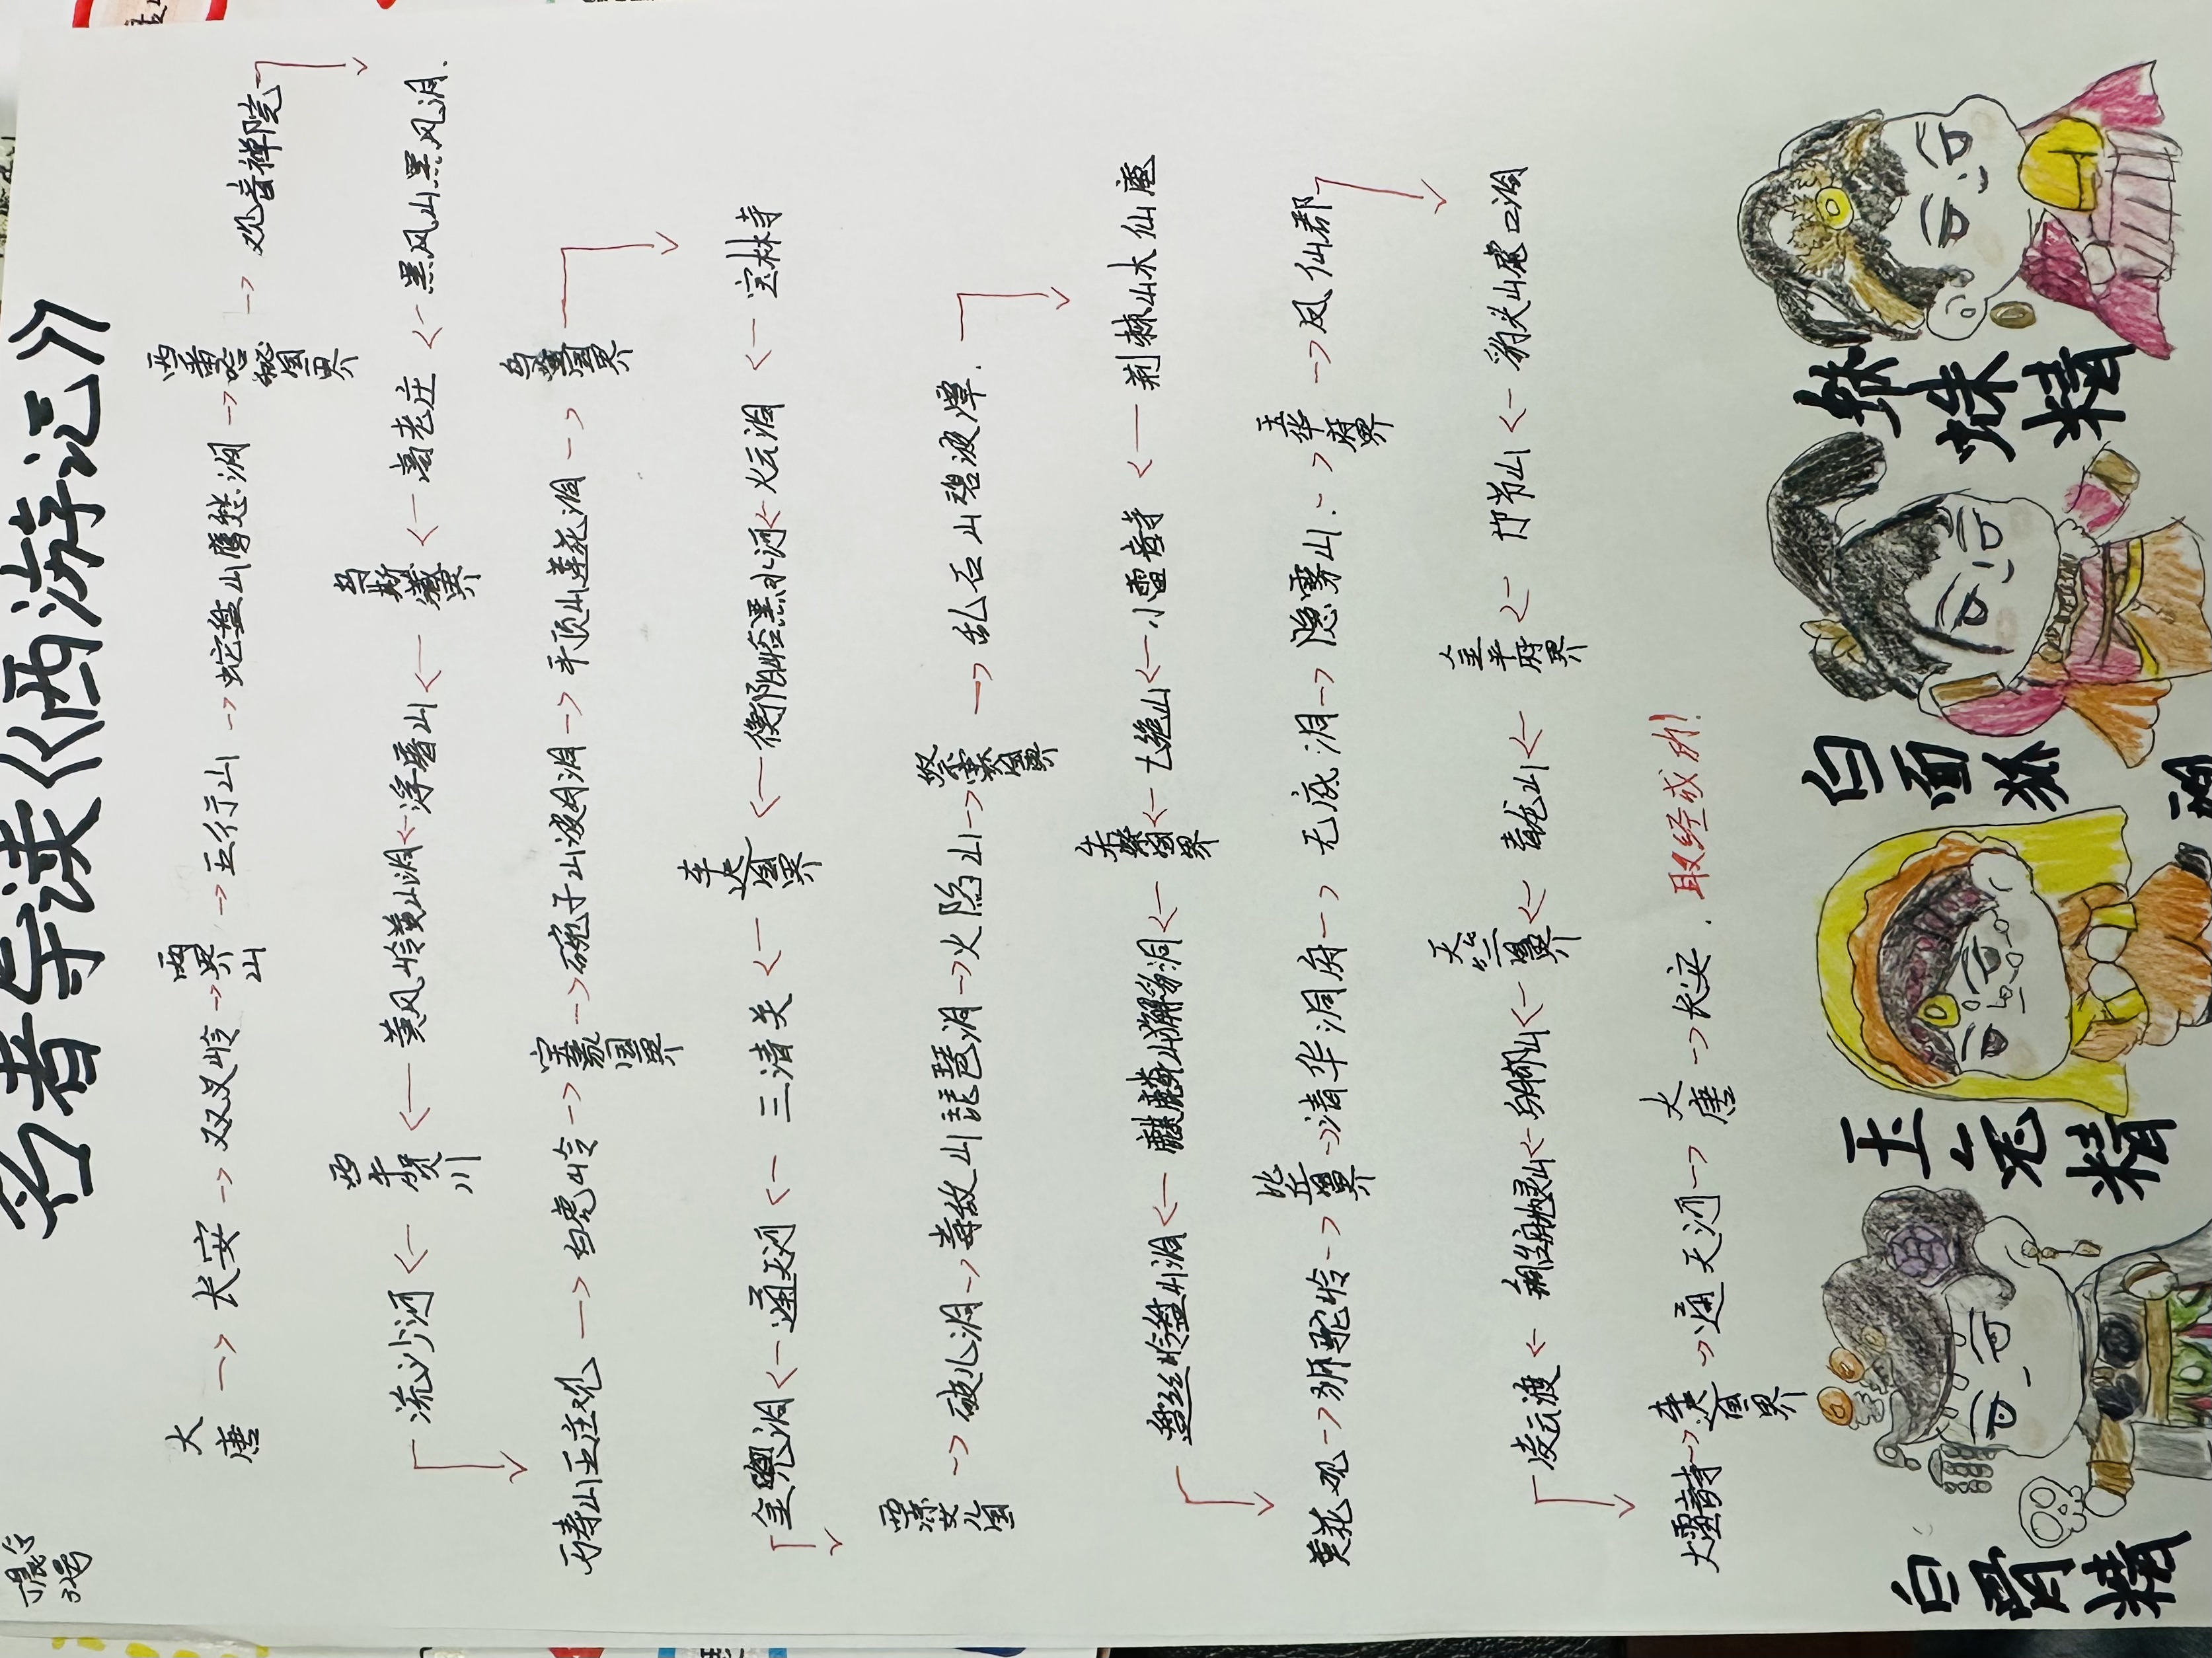 名者导读《西游记》
31号
大唐→长安→双叉岭→两界山→五行山→蛇盘山鹰愁涧→西番哈咇国界→观音禅院
流沙河←西牛贺川←黄风岭黄山洞←浮屠山←乌斯藏界←高老庄←黑风山黑风洞.
万寿山五庄观→白虎岭→宝象国界→碗子山波月洞→平顶山莲花洞→乌鸡国界
金兜洞←通天河←三清关←车迟国界←衡阳峪黑水河←火云洞←宝林寺
西凉女儿国→破儿洞→毒敌山琵琶洞→火陷山→祭赛国界→乱石山碧波潭.
盘丝岭盘山洞←麒麟山獬豸洞←朱紫国界←七绝山←小雷音寺←荆棘山木仙庵
黄花观→狮驼岭→比丘国界→清华洞府→无底洞→隐雾山→玉华府界→凤仙郡
凌云渡←←天竺国界←青龙山←金平府界←竹节山←豹头山虎口洞
大雷音寺→车迟国界→通天河→大唐→长安.取经成功!
白骨精
玉兔精
白面狐
蜘蛛精